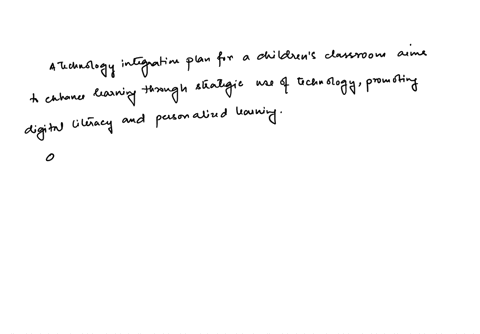 A technology integration plan for a children's classroom aims
to enhance learning through strategic use of technology, promoting
digital literacy and personalized learning.
O